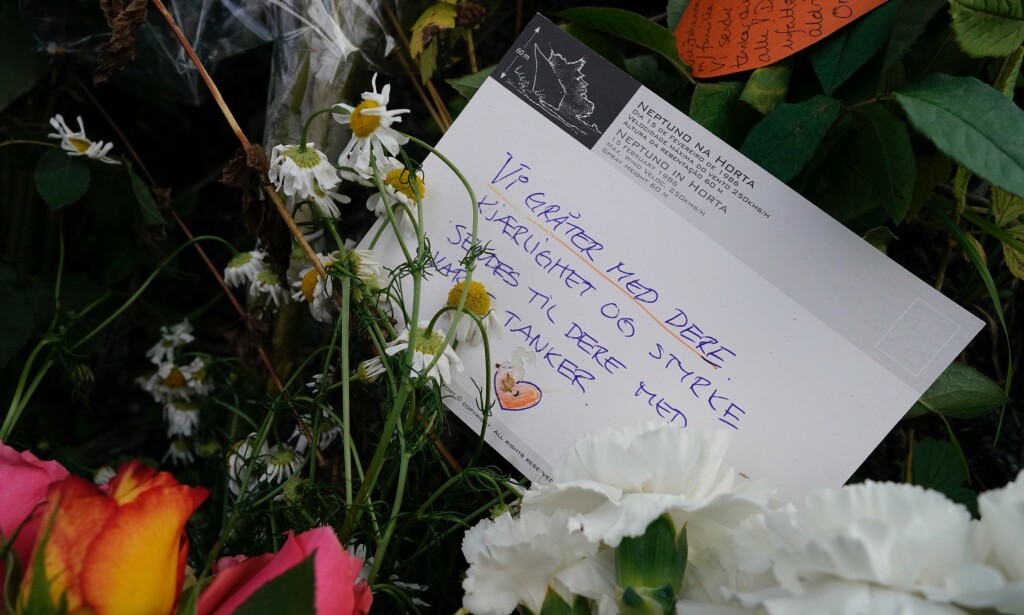 60 m
NEPTUNO NA HORTA
DIA 15 DE FEVEREIRO DE 1986
VELOCIDADE MÁXIMA DO VENTO 250KMS/H
ALTURA DA REBENTAÇÃO 60 M
NEPTUNO IN HORTA
15 FEBRUARY 1986
MAX. WIND VELOC. 250KMS/H
SPRAY HEIGHT 60 M
VI GRÅTER MED DERE.
KJÆRLIGHET OG STYRKE
SENDES TIL DERE MED
TANKER
© COPYRIGHT. ALL RIGHTS RESERVED